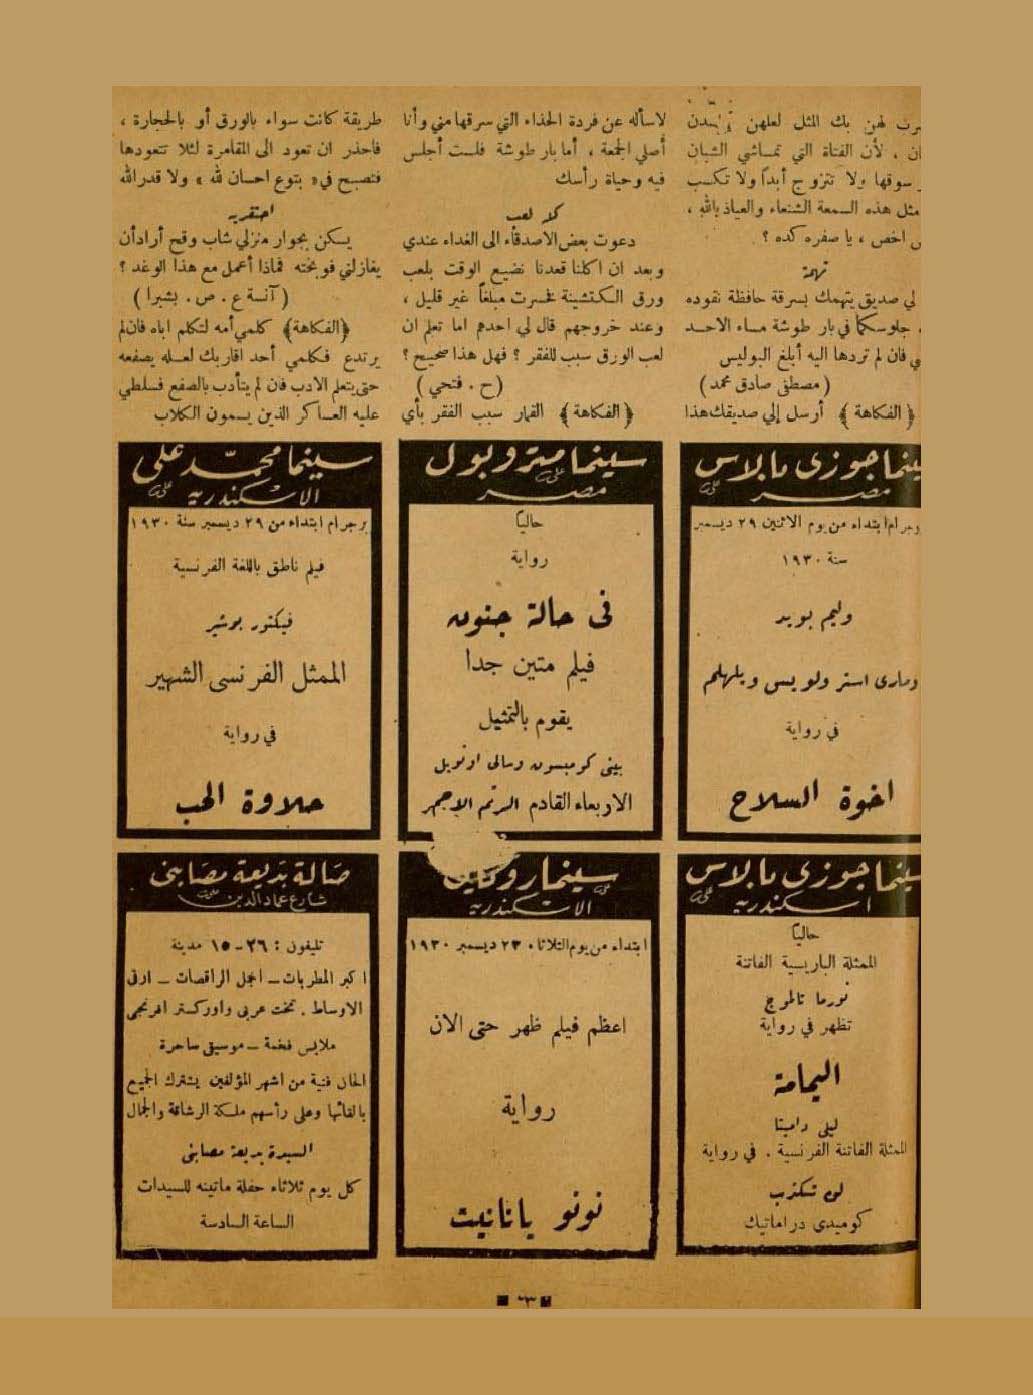 لهن بك المثل لعلهن
ان ، لأن الفتاة التي تماشي الشبان
سوقها ولا تتزوج أبداً ولا تكسب
مثل هذه السمعة الشنعاء والعياذ بالله ،
اخص ، يا صفره كده ؟
تهمة
لي صديق يتهمك بسرقة حافظة نقوده
، جلوسكما في بار طوشة مساء الاحد
ي فان لم تردها اليه أبلغ البوليس
( مصطفى صادق محمد )
﴿ الفكاهة ﴾ أرسل إلي صديقك هذا
لاسأله عن فردة الحذاء التي سرقها مني وأنا
أصلي الجمعة ، أما بار طوشة فلست أجلس
فيه وحياة رأسك
كلا لعب
دعوت بعض الاصدقاء الى الغداء عندي
وبعد ان اكلنا قعدنا نضيع الوقت بلعب
ورق الكتشينة فخسرت مبلغاً غير قليل ،
وعند خروجهم قال لي احدهم اما تعلم ان
لعب الورق سبب للفقر ؟ فهل هذا صحيح ؟
( ح . فتحي )
﴿ الفكاهة ﴾ القمار سبب الفقر بأي
طريقة كانت سواء بالورق أو بالحجارة ،
فاحذر ان تعود الى المقامرة لئلا تتعودها
فتصبح في « بتوع احسان لله » ولا قدر الله
احتقريه
يسكن بجوار منزلي شاب وقح أراد أن
يغازلني فوبخته فماذا أعمل مع هذا الوغد ؟
( آنسة ع . ص . بشبرا )
﴿ الفكاهة ﴾ كلمي أمه لتكلم اباه فان لم
يرتدع فكلمي أحد اقاربك لعله يصفعه
حتى يتعلم الادب فان لم يتأدب بالصفع فسلطي
عليه العساكر الذين يسمون الكلاب
سينما جوزى بالاس
مصر
برجرام ابتداء من يوم الاثنين ٢٩ ديسمبر
سنة ١٩٣٠
وليم بويد
ومارى استر ولويس ويلهلم
في رواية
اخوة السلاح
سينما متروبول
مصر
حاليا
رواية
فى حالة جنون
فيلم متين جدا
يقوم بالتمثيل
بينى كومبسون وسالى اونويل
الاربعاء القادم الرقم الاحمر
سينما محمد على
الاسكندرية
برجرام ابتداء من ٢٩ ديسمبر سنة ١٩٣٠
فيلم ناطق باللغة الفرنسية
فيكتور بوشير
الممثل الفرنسى الشهير
في رواية
حلاوة الحب
سينما جوزى بالاس
اسكندرية
حاليا
الممثلة الباريسية الفاتنة
نورما تالمودج
تظهر في رواية
اليمامة
ليلى داميتا
الممثلة الفاتنة الفرنسية . في رواية
لن تكذب
كوميدى دراماتيك
سينما
الاسكندرية
ابتداء من يوم الثلاثاء ٢٣ ديسمبر ١٩٣٠
اعظم فيلم ظهر حتى الان
رواية
نونو يانانيت
صالة بديعة مصابنى
شارع عماد الدين
تليفون : ٣٦ - ١٥ مدينة
اكبر المطربات - اجمل الراقصات - ارقى
الاوساط . تخت عربى واوركستر افرنجى
ملابس فخمة - موسيقى ساحرة
الحان فنية من اشهر المؤلفين يشترك الجميع
بالقائها وعلى رأسهم ملكة الرشاقة والجمال
السيدة بديعة مصابنى
كل يوم ثلاثاء حفلة ماتينه للسيدات
الساعة السادسة